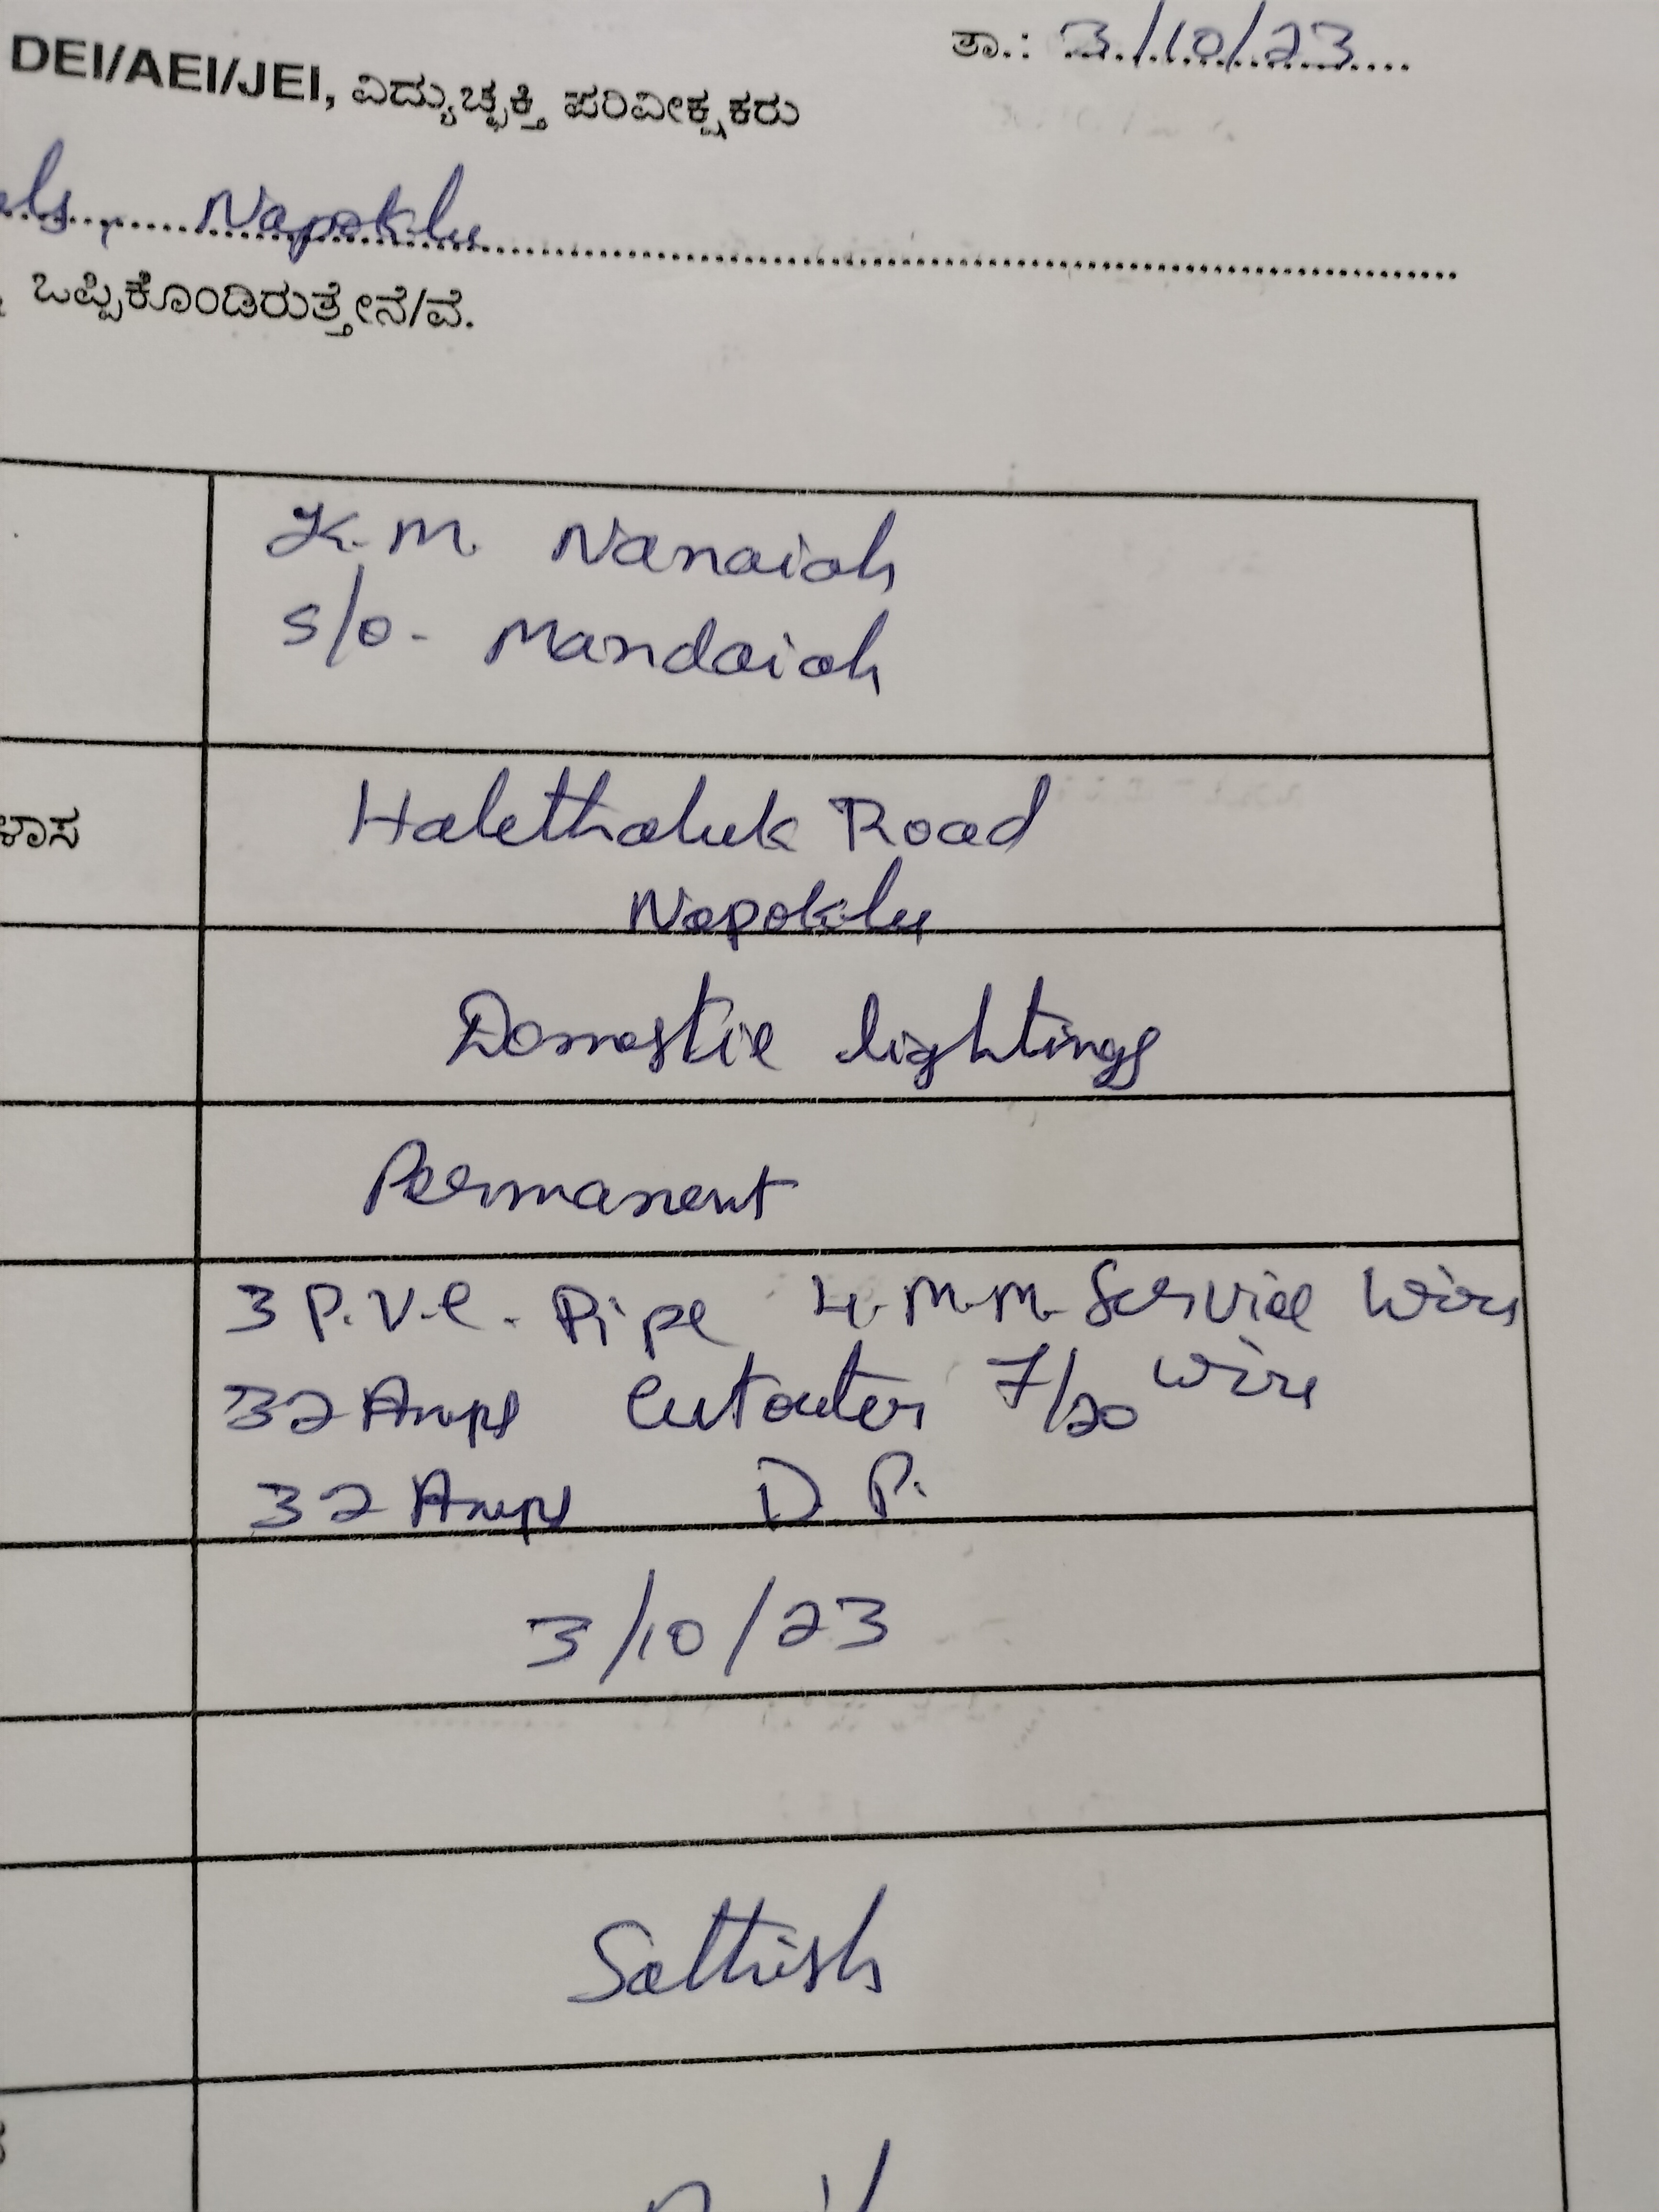 ತಾ.: 3/10/23
DEI/AEI/JEI, ವಿದ್ಯುಚ್ಛಕ್ತಿ ಪರಿವೀಕ್ಷಕರು
Napoklu
ಒಪ್ಪಿಕೊಂಡಿರುತ್ತೇನೆ/ವೆ.
K. M. Nanaiah
S/o- Mandaiah
ಳಾಸ
Halethaluk Road
Napoklu
Domestic lightings
Permanent
3 P.V.C. Pipe 4. M.M. Service Wire
32 Amps Cutouter 7/20 Wire
32 Amps D.P.
3/10/23
Sathish